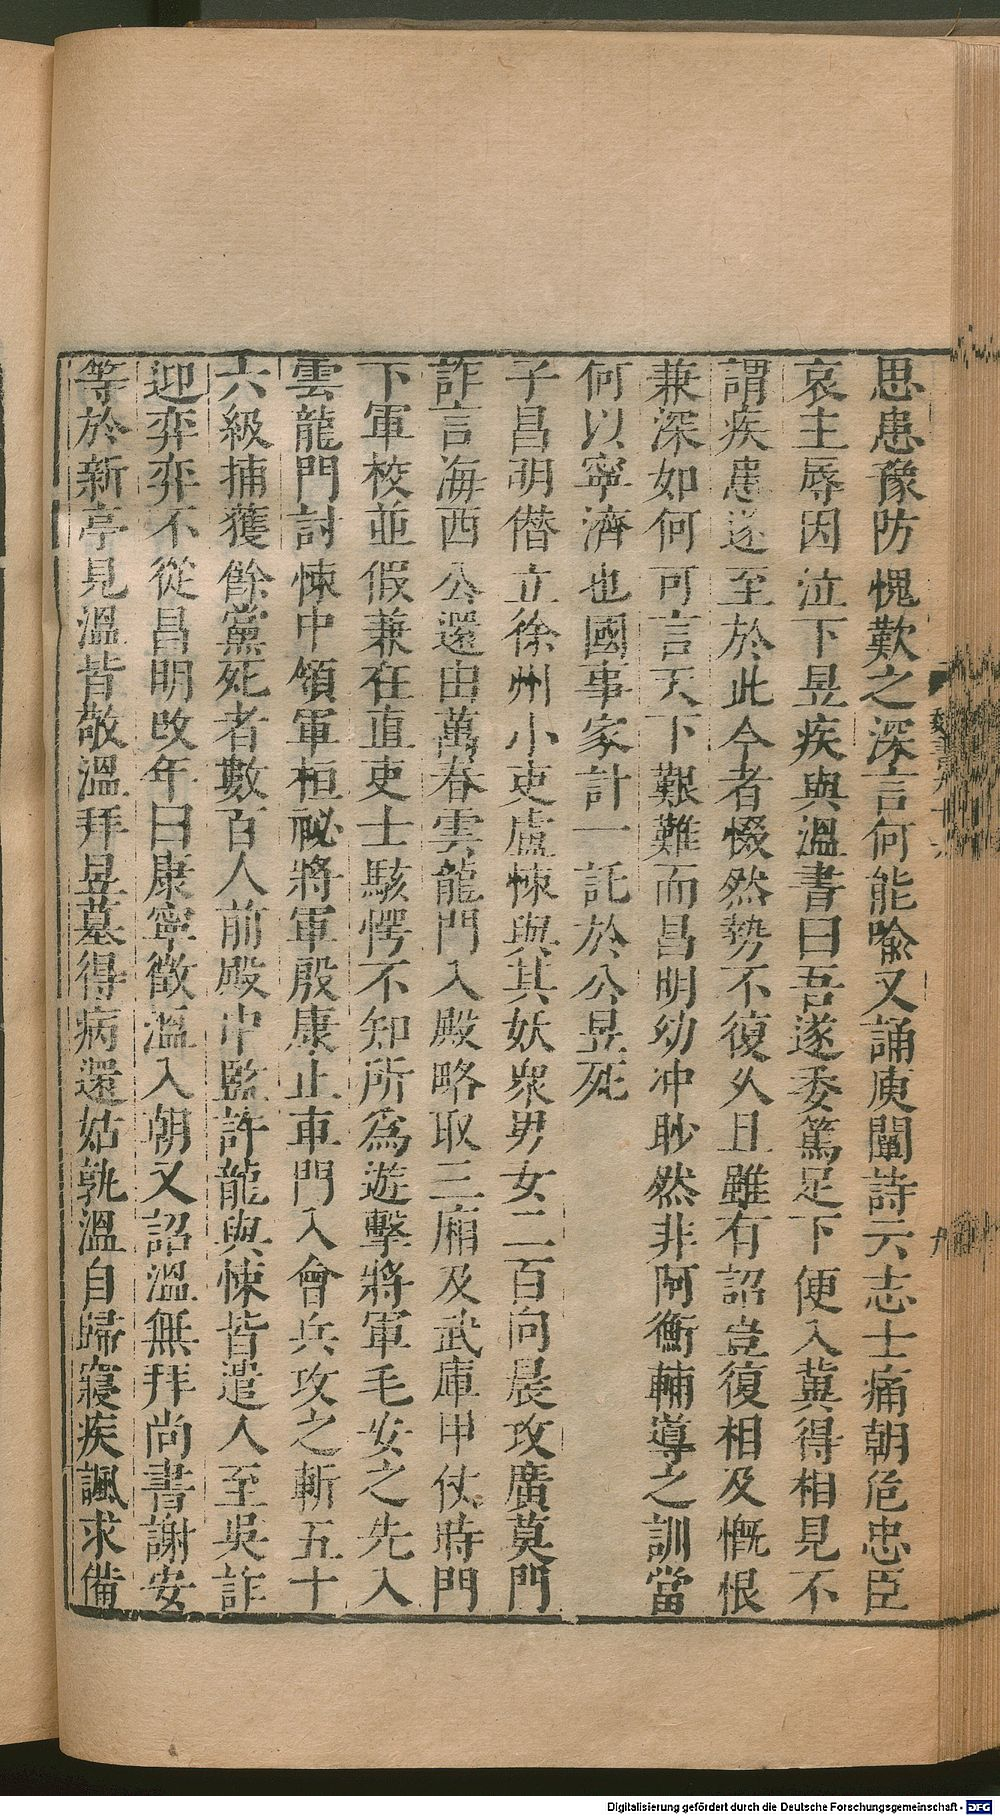 思患豫防愧歎之深言何能喻又誦庾闡詩云志士痛朝危忠臣
哀主辱因泣下昱疾與溫書曰吾遂委篤足下便入冀得相見不
謂疾患遂至於此今者惙然勢不復久且雖有詔豈復相及慨恨
兼深如何可言天下艱難而昌明幼冲眇然非阿衡輔導之訓當
何以寧濟也國事家計一託於公昱死
子昌明僣立徐州小吏盧悚與其妖衆男女二百向晨攻廣莫門
詐言海西公還由萬春雲龍門入殿略取三廂及武庫甲仗時門
下軍校並假兼在直吏士駭愕不知所為遊擊將軍毛安之先入
雲龍門討悚中領軍桓祕將軍殷康止車門入會兵攻之斬五十
六級捕獲餘黨死者數百人前殿中監許龍與悚皆遣人至吳詐
迎弈弈不從昌明改年曰康寧徵溫入朝又詔溫無拜尚書謝安
等於新亭見溫皆敬溫拜昱墓得病還姑孰溫自歸寢疾諷求備
Digitalisierung gefördert durch die Deutsche Forschungsgemeinschaft - DFG